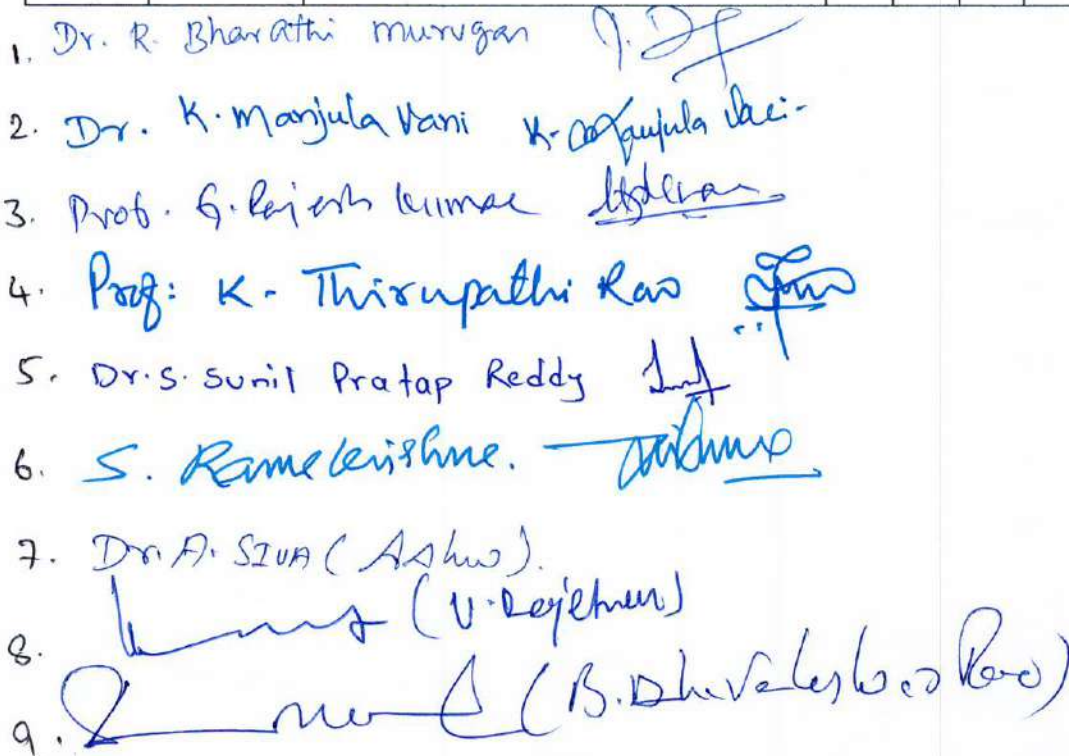 1. Dr. R. Bharathi Murugan
2. Dr. K. Manjula Vani K. Manjula Vani
3. Prof. G. Rajesh Kumar
4. Prof: K. Thirupathi Rao
5. Dr. S. Sunil Pratap Reddy
6. S. Ramakrishna.
7. Dr. A. SIVA (
8. (V.
9. (B. Rao)